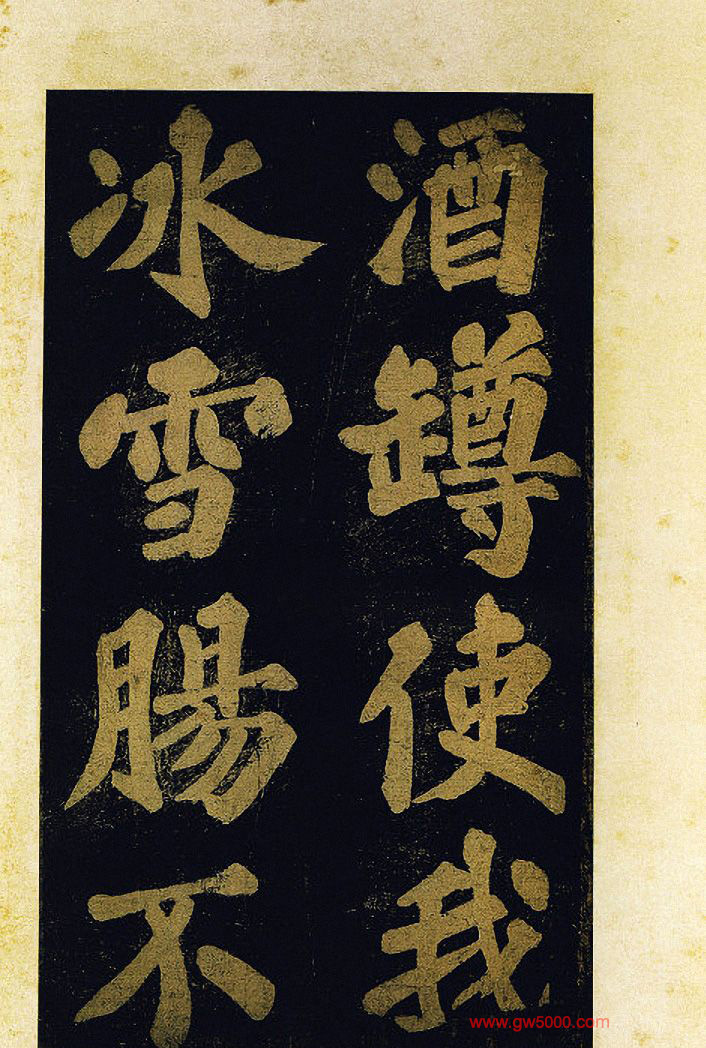 酒罇使我
冰雪腸不
www.gw5000.com